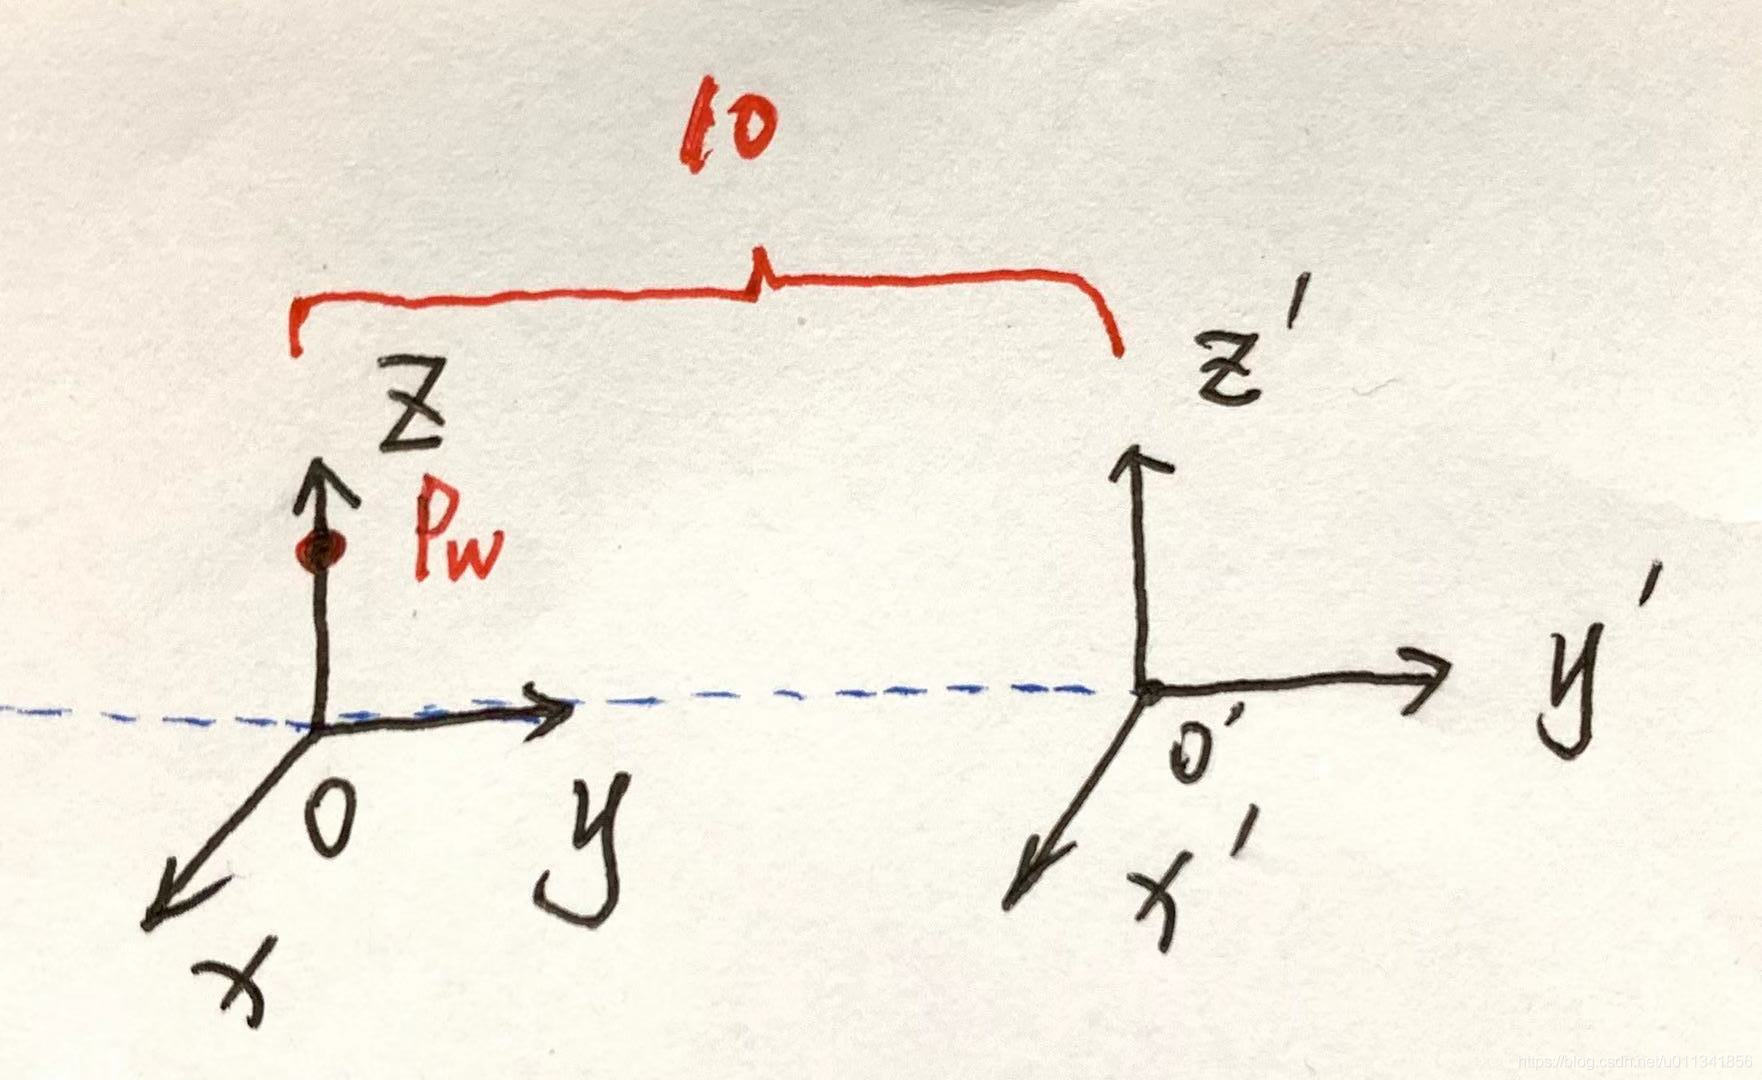 10
z z'
Pw
y'
O O'
y
x x'
https://blog.csdn.net/u011341856